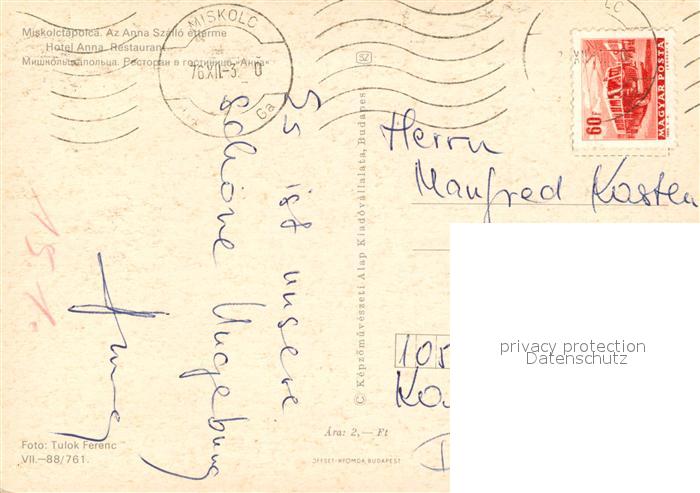 Miskolctapolca. Az Anna Szálló étterme
Hotel Anna. Restaurant
Мишкольцтапольца. Ресторан в гостинице "Анна"
MISKOLC
76 XII-3.
SZ
60f
MAGYAR POSTA
Es ist unsere
schöne Umgebung
15. 1.
Herrn
Manfred Kasten
105
Ka
D
© Képzőművészeti Alap Kiadóvállalata, Budapest
Ára: 2,— Ft
OFFSET-NYOMDA, BUDAPEST
Foto: Tulok Ferenc
VII.—88/761.
privacy protection
Datenschutz